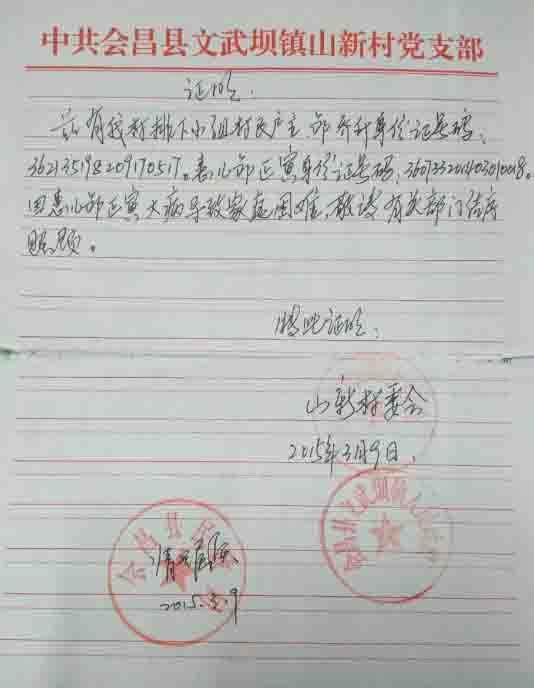 中共会昌县文武坝镇山新村党支部
证明
兹有我村排下小组村民户主 郭 身份证号码:
362135198209170517。患儿郭正寅身份证号码:360733201403010018。
因患儿郭正寅大病导致家庭困难,敬请有关部门给序
照顾。
特此证明
山新村委会
2015年3月9日
会昌县文武坝镇人民政府
会昌县民
情况属实
2015.3.9